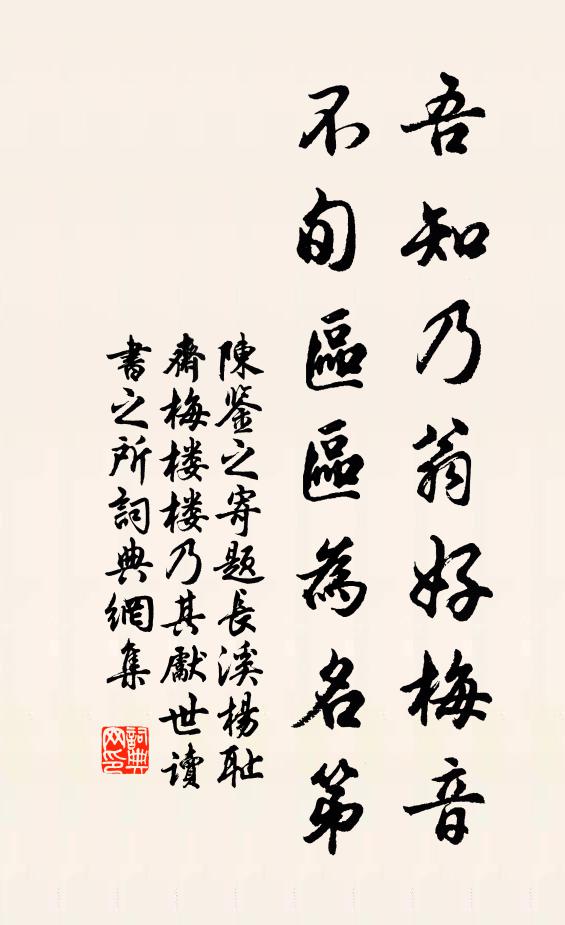 吾知乃翁好梅音
不旬區區為名第
陳鉴之寄題長溪楊耻
齋梅楼楼乃其獻世读
書之所詞典網集
詞典网印